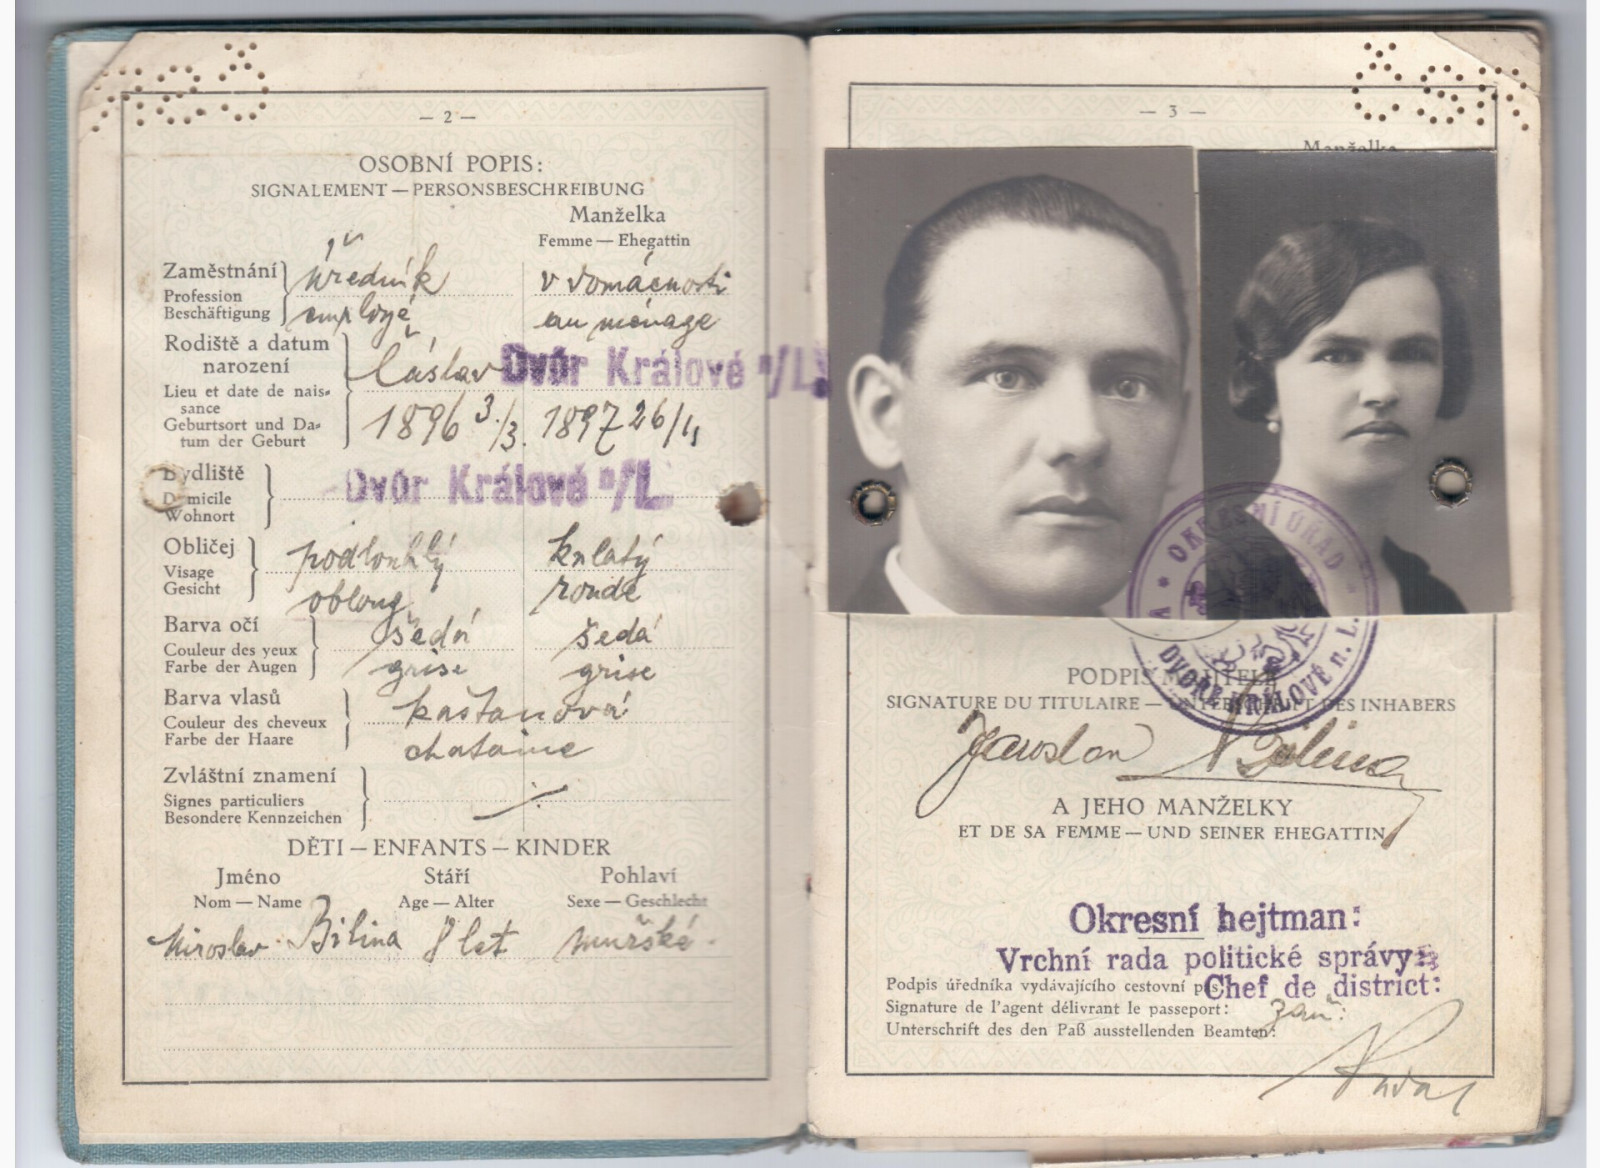 — 2 —
OSOBNÍ POPIS:
SIGNALEMENT — PERSONSBESCHREIBUNG
Manželka
Femme — Ehegattin
Zaměstnání úředník v domácnosti
Profession
Beschäftigung employé en ménage
Rodiště a datum
narození Čáslav Dvůr Králové n/L.
Lieu et date de nais-
sance
Geburtsort und Da-
tum der Geburt 1896 3./3. 1897 26/11
Bydliště
Domicile Dvůr Králové n/L.
Wohnort
Obličej podlouhlý kulatý
Visage
Gesicht oblong ronde
Barva očí šedá šedá
Couleur des yeux
Farbe der Augen grise grise
Barva vlasů kaštanová
Couleur des cheveux
Farbe der Haare chataine
Zvláštní znamení
Signes particuliers
Besondere Kennzeichen
DĚTI — ENFANTS — KINDER
Jméno Stáří Pohlaví
Nom — Name Age — Alter Sexe — Geschlecht
Miroslav Bílina 8 let mužské
— 3 —
Manželka
OKRESNÍ ÚŘAD
V DVOŘE KRÁLOVÉ n. L.
PODPIS MAJITELE
SIGNATURE DU TITULAIRE — UNTERSCHRIFT DES INHABERS
Jaroslav Bílina
A JEHO MANŽELKY
ET DE SA FEMME — UND SEINER EHEGATTIN
Okresní hejtman:
Vrchní rada politické správy:
Podpis úředníka vydávajícího cestovní pas
Chef de district:
Signature de l'agent délivrant le passeport:
Unterschrift des den Paß ausstellenden Beamten: